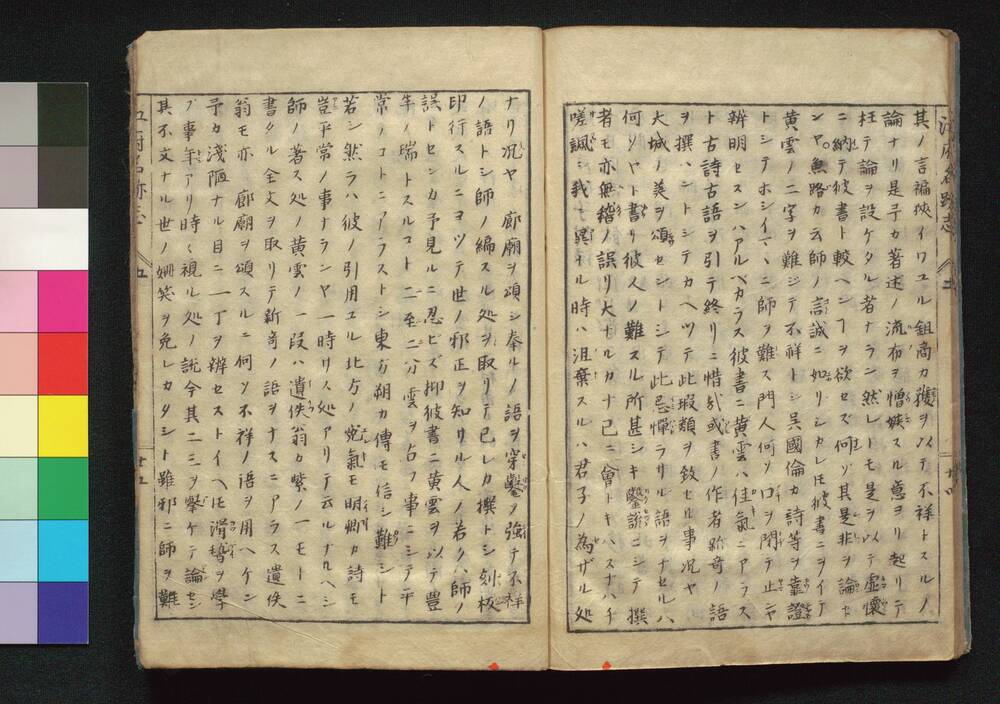 其ノ言褊狹イワユル鉏商カ麟ヲ以テ不祥トスルノ
論ナリ是予カ著述ノ流布ヲ憎嫉スル意ヨリ起リテ
枉テ論ヲ設ケタル者ナラン然レトモ是ヲ以テ虚懷
ニ納テ彼書ト較ヘン事ヲ欲セズ何ゾ其是非ヲ論セ
ンヤ魚路カ云師ノ言誠ニ如リシカレ𪜈彼書ニヲイテ
黄雲ノ二字ヲ難ジテ不祥トシ呉國倫カ詩等ヲ靠證
トシテホシイマヽニ師ヲ難ス門人何ソ口ヲ閉テ止ンヤ
辨明セスンハアルベカラス彼書ニ黄雲ハ佳氣ニアラス
ト古詩古語ヲ引テ終リニ惜哉或書ノ作者新奇ノ語
ヲ撰ハントシテカヘツテ此瑕纇ヲ致セル事況ヤ
大城ノ美ヲ頌セントシテ此忌憚ラサル語ヲナセルハ
何ソヤト書リ彼人ノ難スル所甚シキ鑿說ニシテ撰
者モ亦無稽ノ誤リ大ナルカナ已ニ會トキハスナハチ
嗟諷シ我ト異ナル時ハ沮棄スルハ君子ノ為ザル処
ナリ況ヤ 廊廟ヲ頌シ奉ルノ語ヲ穿鑿ノ強テ不祥
ノ語トシ師ノ編スル処ヲ取リテ已レカ撰トシ刻板
印行スルニヨツテ世ノ邪正ヲ知サル人ノ若クハ師ノ
誤トセンカ予見ルニ忍ビズ抑彼書ニ黄雲ヲ以テ豊
年ノ瑞トスルコト二至二分雲ヲ占フ事ニシテ平
常ノコトニアラストシ東方朔カ傳モ信シ難シト
若シ然ラハ彼ノ引用ユル北方ノ蛇氣モ明卿カ詩モ
豈平常ノ事ナランヤ一時リス処アリテ云ルナルヘシ
師ノ著ス処ノ黄雲ノ一段ハ遺佚翁カ紫ノ一モトニ
書タル全文ヲ取リテ新奇ノ語ヲナスニアラス遺佚
翁モ亦 廊廟ヲ頌スルニ何ソ不祥ノ語ヲ用ヘケン
予カ淺陋ナル目ニ一丁ヲ辨セストイヘ𪜈滑稽ヲ學
ブ事年アリ時々視ル処ノ說今其二三ヲ擧ケテ論セン
其不文ナル世ノ姍笑ヲ免レカタシト雖邪ニ師ヲ難